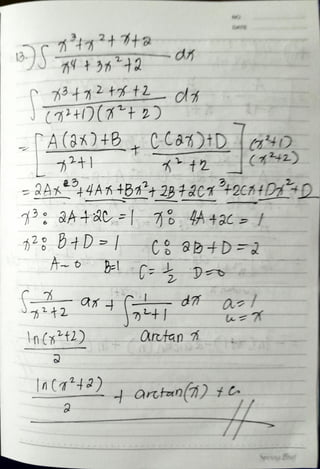 NO.
DATE
13.) ∫ x³+x²+x+2 / x⁴+3x²+2 dx
∫ x³+x²+x+2 / (x²+1)(x²+2) dx
= [ A(2x)+B / x²+1 + C(2x)+D / x²+2 ] (x²+1)(x²+2)
= 2Ax³+4Ax+Bx²+2B+2Cx³+2Cx+Dx²+D
x³: 2A+2C=1 x: 4A+2C=1
x²: B+D=1 C: 2B+D=2
A=0 B=1 C=1/2 D=0
∫ x / x²+2 dx + ∫ 1 / x²+1 dx a=1 u=x
ln(x²+2) / 2 arctan x
ln(x²+2) / 2 + arctan(x)+c